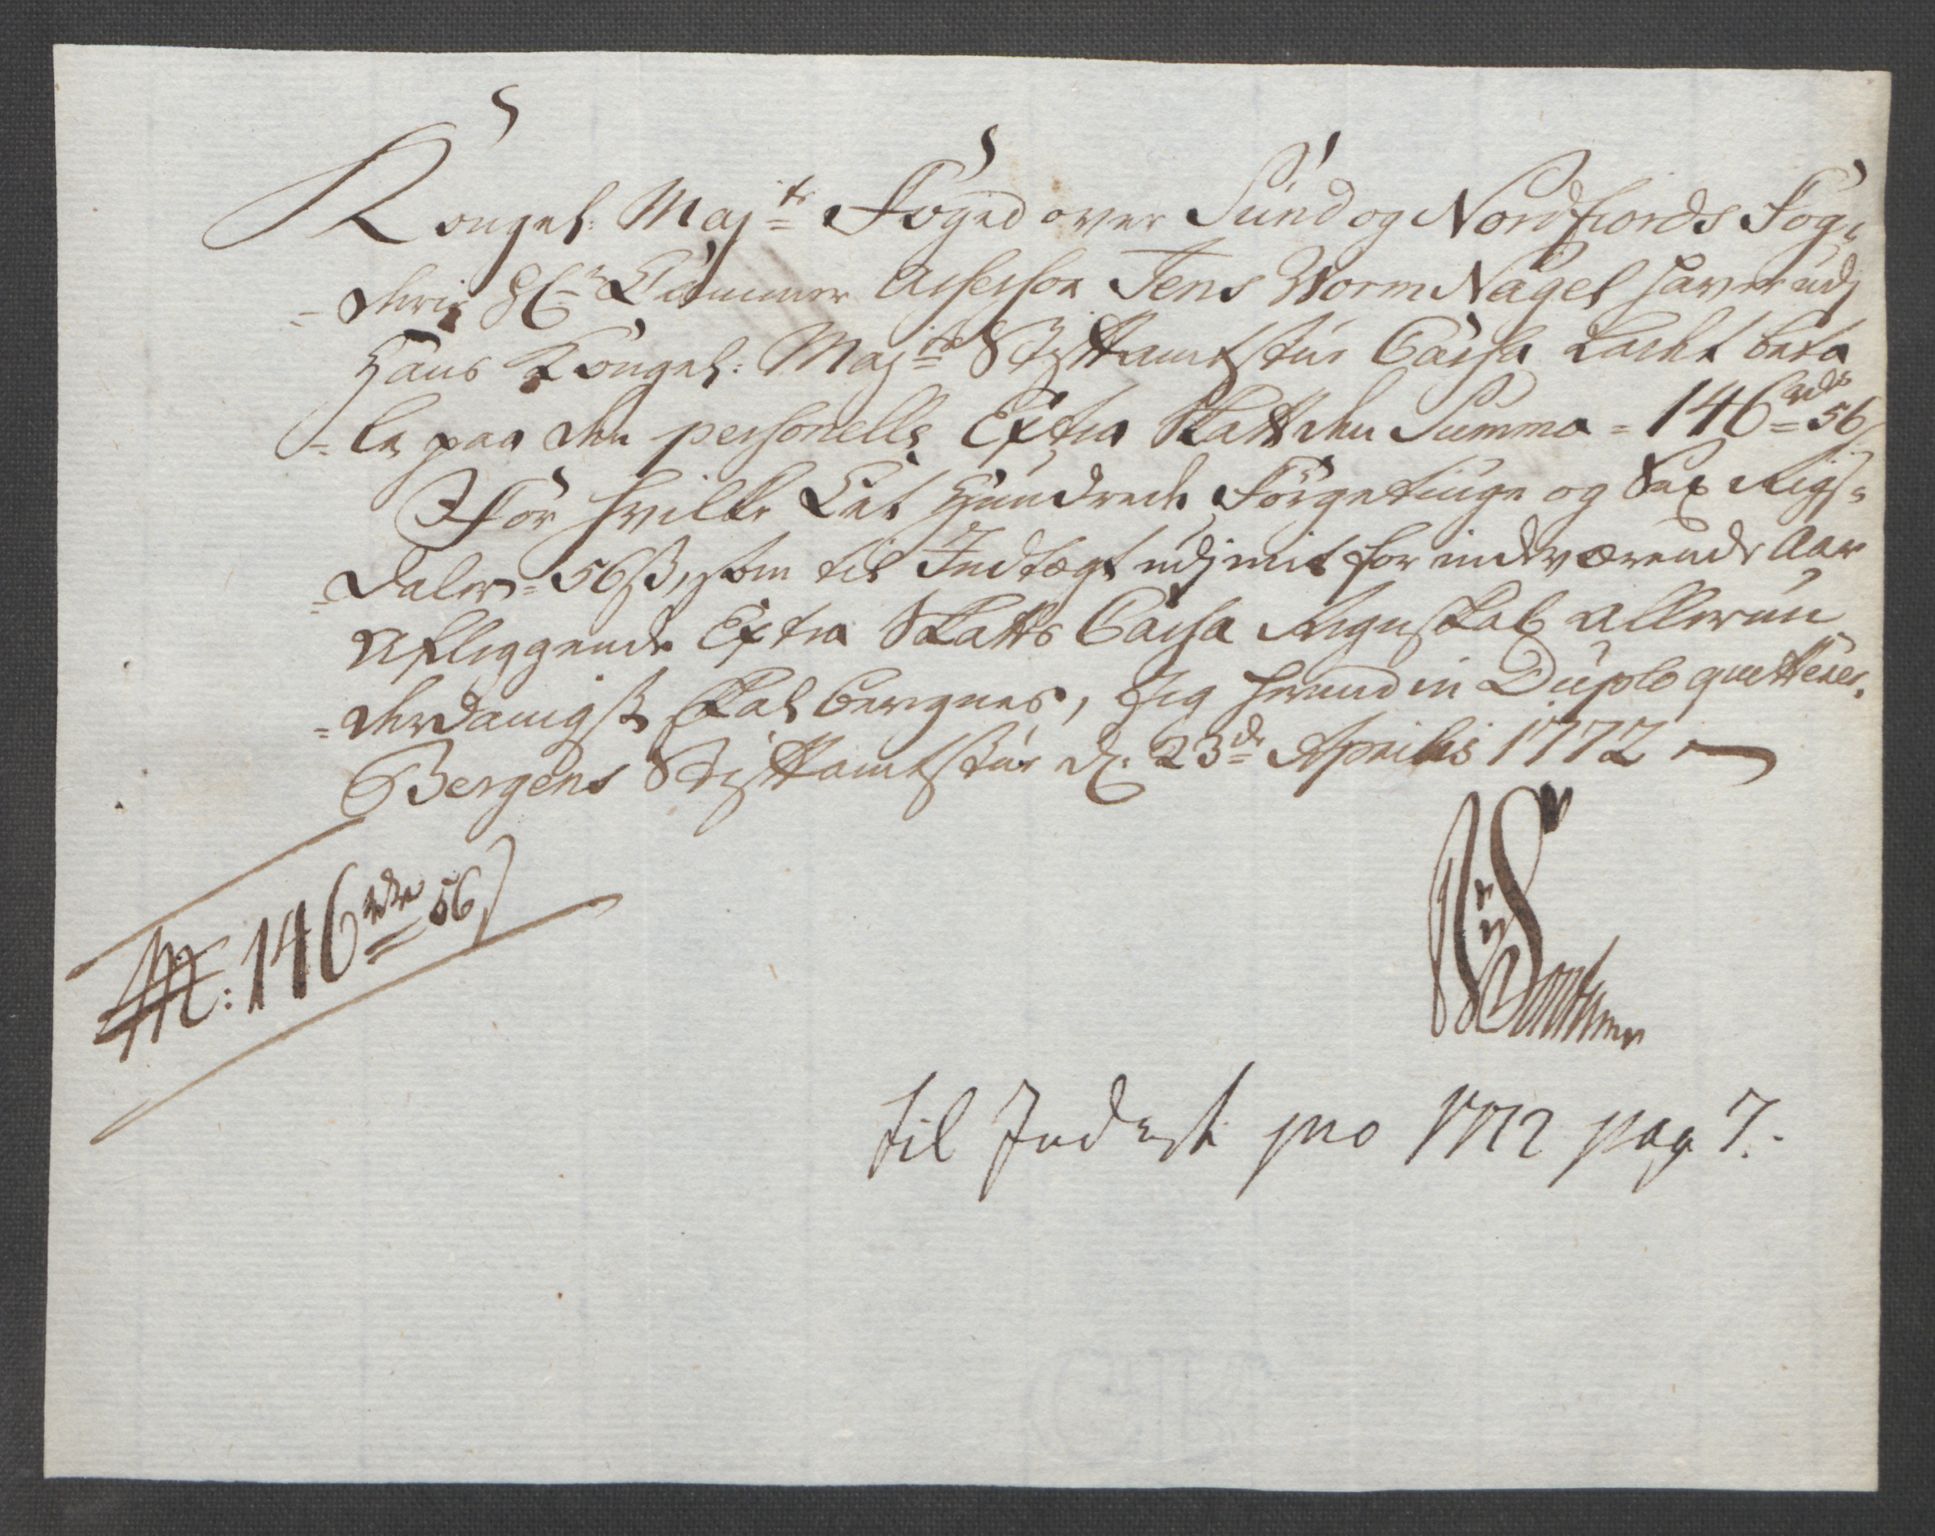 Kongel: Maj.ts Foged over Sund og Nordfiords Fog,
-derie Hr. Cammer Assessor Jens Worm Nagel haver udj
Hans Kongel: Maj.ts Stiftamtstue Cassa ladet beta
-le paa den personelle Extra Skatt den Summa = 146 rd 56 s
For hvilke Eet Hundrede Førgetiuge og Sex Rigs=
-daler 56 s, som til Indtægt udj mit for indeværende Aar
aflæggende Extra Skatts Cassa Regnskab allerun
-derdanigst skal beregnes, Jeg herved in Duplo quitterer.
Bergens Stiftamtstue d. 23de Aprilis 1772
146 rdr 56 s
til Indægt pro 1772 pag 7.